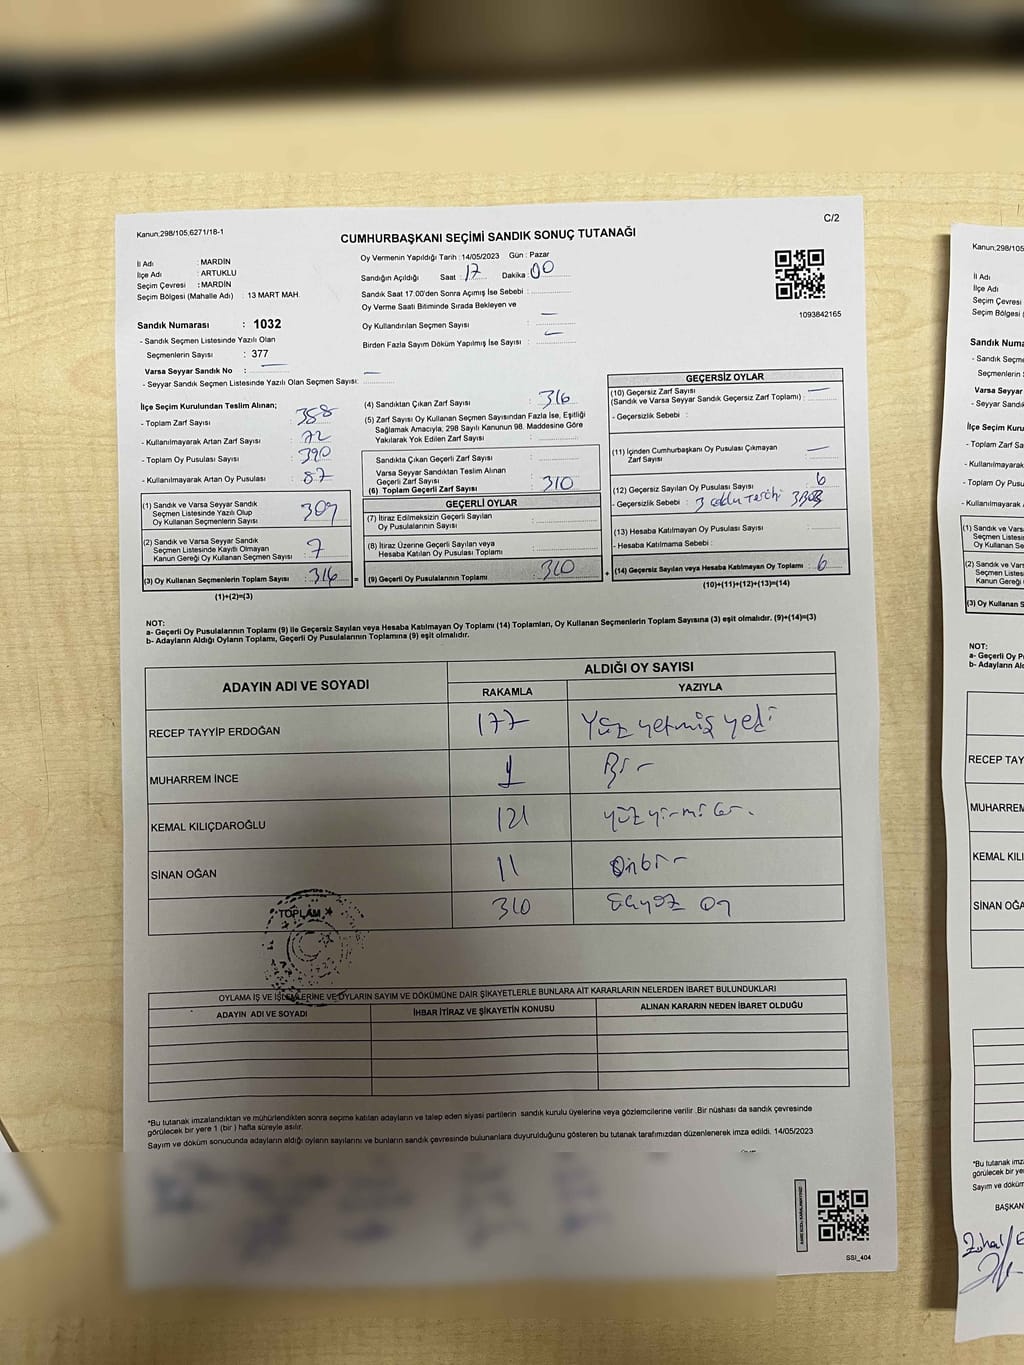 C/2
Kanun,298/105,6271/18-1
CUMHURBAŞKANI SEÇİMİ SANDIK SONUÇ TUTANAĞI
İl Adı : MARDİN
İlçe Adı : ARTUKLU
Seçim Çevresi : MARDİN
Seçim Bölgesi (Mahalle Adı) : 13 MART MAH.
Oy Vermenin Yapıldığı Tarih : 14/05/2023 Gün : Pazar
Sandığın Açıldığı Saat : 17 Dakika : 00
Sandık Saat 17:00'den Sonra Açılmış İse Sebebi :
Oy Verme Saati Bitiminde Sırada Bekleyen ve
Oy Kullandırılan Seçmen Sayısı : —
Birden Fazla Sayım Döküm Yapılmış İse Sayısı : —
1093842165
Sandık Numarası : 1032
- Sandık Seçmen Listesinde Yazılı Olan
Seçmenlerin Sayısı : 377
Varsa Seyyar Sandık No : —
- Seyyar Sandık Seçmen Listesinde Yazılı Olan Seçmen Sayısı: —
İlçe Seçim Kurulundan Teslim Alınan;
- Toplam Zarf Sayısı : 388
- Kullanılmayarak Artan Zarf Sayısı : 72
- Toplam Oy Pusulası Sayısı : 390
- Kullanılmayarak Artan Oy Pusulası : 87
(1) Sandık ve Varsa Seyyar Sandık
Seçmen Listesinde Yazılı Olup
Oy Kullanan Seçmenlerin Sayısı : 309
(2) Sandık ve Varsa Seyyar Sandık
Seçmen Listesinde Kayıtlı Olmayan
Kanun Gereği Oy Kullanan Seçmen Sayısı : 7
(3) Oy Kullanan Seçmenlerin Toplam Sayısı : 316
(1)+(2)=(3)
(4) Sandıktan Çıkan Zarf Sayısı : 316
(5) Zarf Sayısı Oy Kullanan Seçmen Sayısından Fazla İse, Eşitliği
Sağlamak Amacıyla, 298 Sayılı Kanunun 98. Maddesine Göre
Yakılarak Yok Edilen Zarf Sayısı :
Sandıkta Çıkan Geçerli Zarf Sayısı :
Varsa Seyyar Sandıktan Teslim Alınan
Geçerli Zarf Sayısı :
(6) Toplam Geçerli Zarf Sayısı : 310
GEÇERLİ OYLAR
(7) İtiraz Edilmeksizin Geçerli Sayılan
Oy Pusulalarının Sayısı :
(8) İtiraz Üzerine Geçerli Sayılan veya
Hesaba Katılan Oy Pusulası Toplamı :
= (9) Geçerli Oy Pusulalarının Toplamı : 310
GEÇERSİZ OYLAR
(10) Geçersiz Zarf Sayısı
(Sandık ve Varsa Seyyar Sandık Geçersiz Zarf Toplamı) : —
- Geçersizlik Sebebi :
(11) İçinden Cumhurbaşkanı Oy Pusulası Çıkmayan
Zarf Sayısı : —
(12) Geçersiz Sayılan Oy Pusulası Sayısı : 6
- Geçersizlik Sebebi :
(13) Hesaba Katılmayan Oy Pusulası Sayısı :
- Hesaba Katılmama Sebebi :
+ (14) Geçersiz Sayılan veya Hesaba Katılmayan Oy Toplamı : 6
(10)+(11)+(12)+(13)=(14)
NOT:
a- Geçerli Oy Pusulalarının Toplamı (9) ile Geçersiz Sayılan veya Hesaba Katılmayan Oy Toplamı (14) Toplamları, Oy Kullanan Seçmenlerin Toplam Sayısına (3) eşit olmalıdır. (9)+(14)=(3)
b- Adayların Aldığı Oyların Toplamı, Geçerli Oy Pusulalarının Toplamına (9) eşit olmalıdır.
ADAYIN ADI VE SOYADI ALDIĞI OY SAYISI
RAKAMLA YAZIYLA
RECEP TAYYİP ERDOĞAN 177 Yüz yetmiş yedi
MUHARREM İNCE 1 Bir
KEMAL KILIÇDAROĞLU 121 yüz yirmi bir
SİNAN OĞAN 11 Onbir
TOPLAM 310 üçyüz on
OYLAMA İŞ VE İŞLEMLERİNE VE OYLARIN SAYIM VE DÖKÜMÜNE DAİR ŞİKAYETLERLE BUNLARA AİT KARARLARIN NELERDEN İBARET BULUNDUKLARI
ADAYIN ADI VE SOYADI İHBAR İTİRAZ VE ŞİKAYETİN KONUSU ALINAN KARARIN NEDEN İBARET OLDUĞU
*Bu tutanak imzalandıktan ve mühürlendikten sonra seçime katılan adayların ve talep eden siyasi partilerin sandık kurulu üyelerine veya gözlemcilerine verilir .Bir nüshası da sandık çevresinde
görülecek bir yere 1 (bir ) hafta süreyle asılır.
Sayım ve döküm sonucunda adayların aldığı oyların sayılarını ve bunların sandık çevresinde bulunanlara duyurulduğunu gösteren bu tutanak tarafımızdan düzenlenerek imza edildi. 14/05/2023
SSI_404
Kanun,298/105
İl Adı
İlçe Adı
Seçim Çevresi
Seçim Bölgesi (M
Sandık Numa
- Sandık Seçme
Seçmenlerin
Varsa Seyyar
- Seyyar Sandık
İlçe Seçim Kuru
- Toplam Zarf Sa
- Kullanılmayara
- Toplam Oy Pus
- Kullanılmayara
(1) Sandık ve Vars
Seçmen Listes
Oy Kullanan Se
(2) Sandık ve Vars
Seçmen Listes
Kanun Gereği
(3) Oy Kullanan S
NOT:
a- Geçerli Oy P
b- Adayların Ald
RECEP TAY
MUHARREM
KEMAL KILI
SİNAN OĞA
*Bu tutanak imz
görülecek bir ye
Sayım ve döküm
BAŞKAN
Zuhal